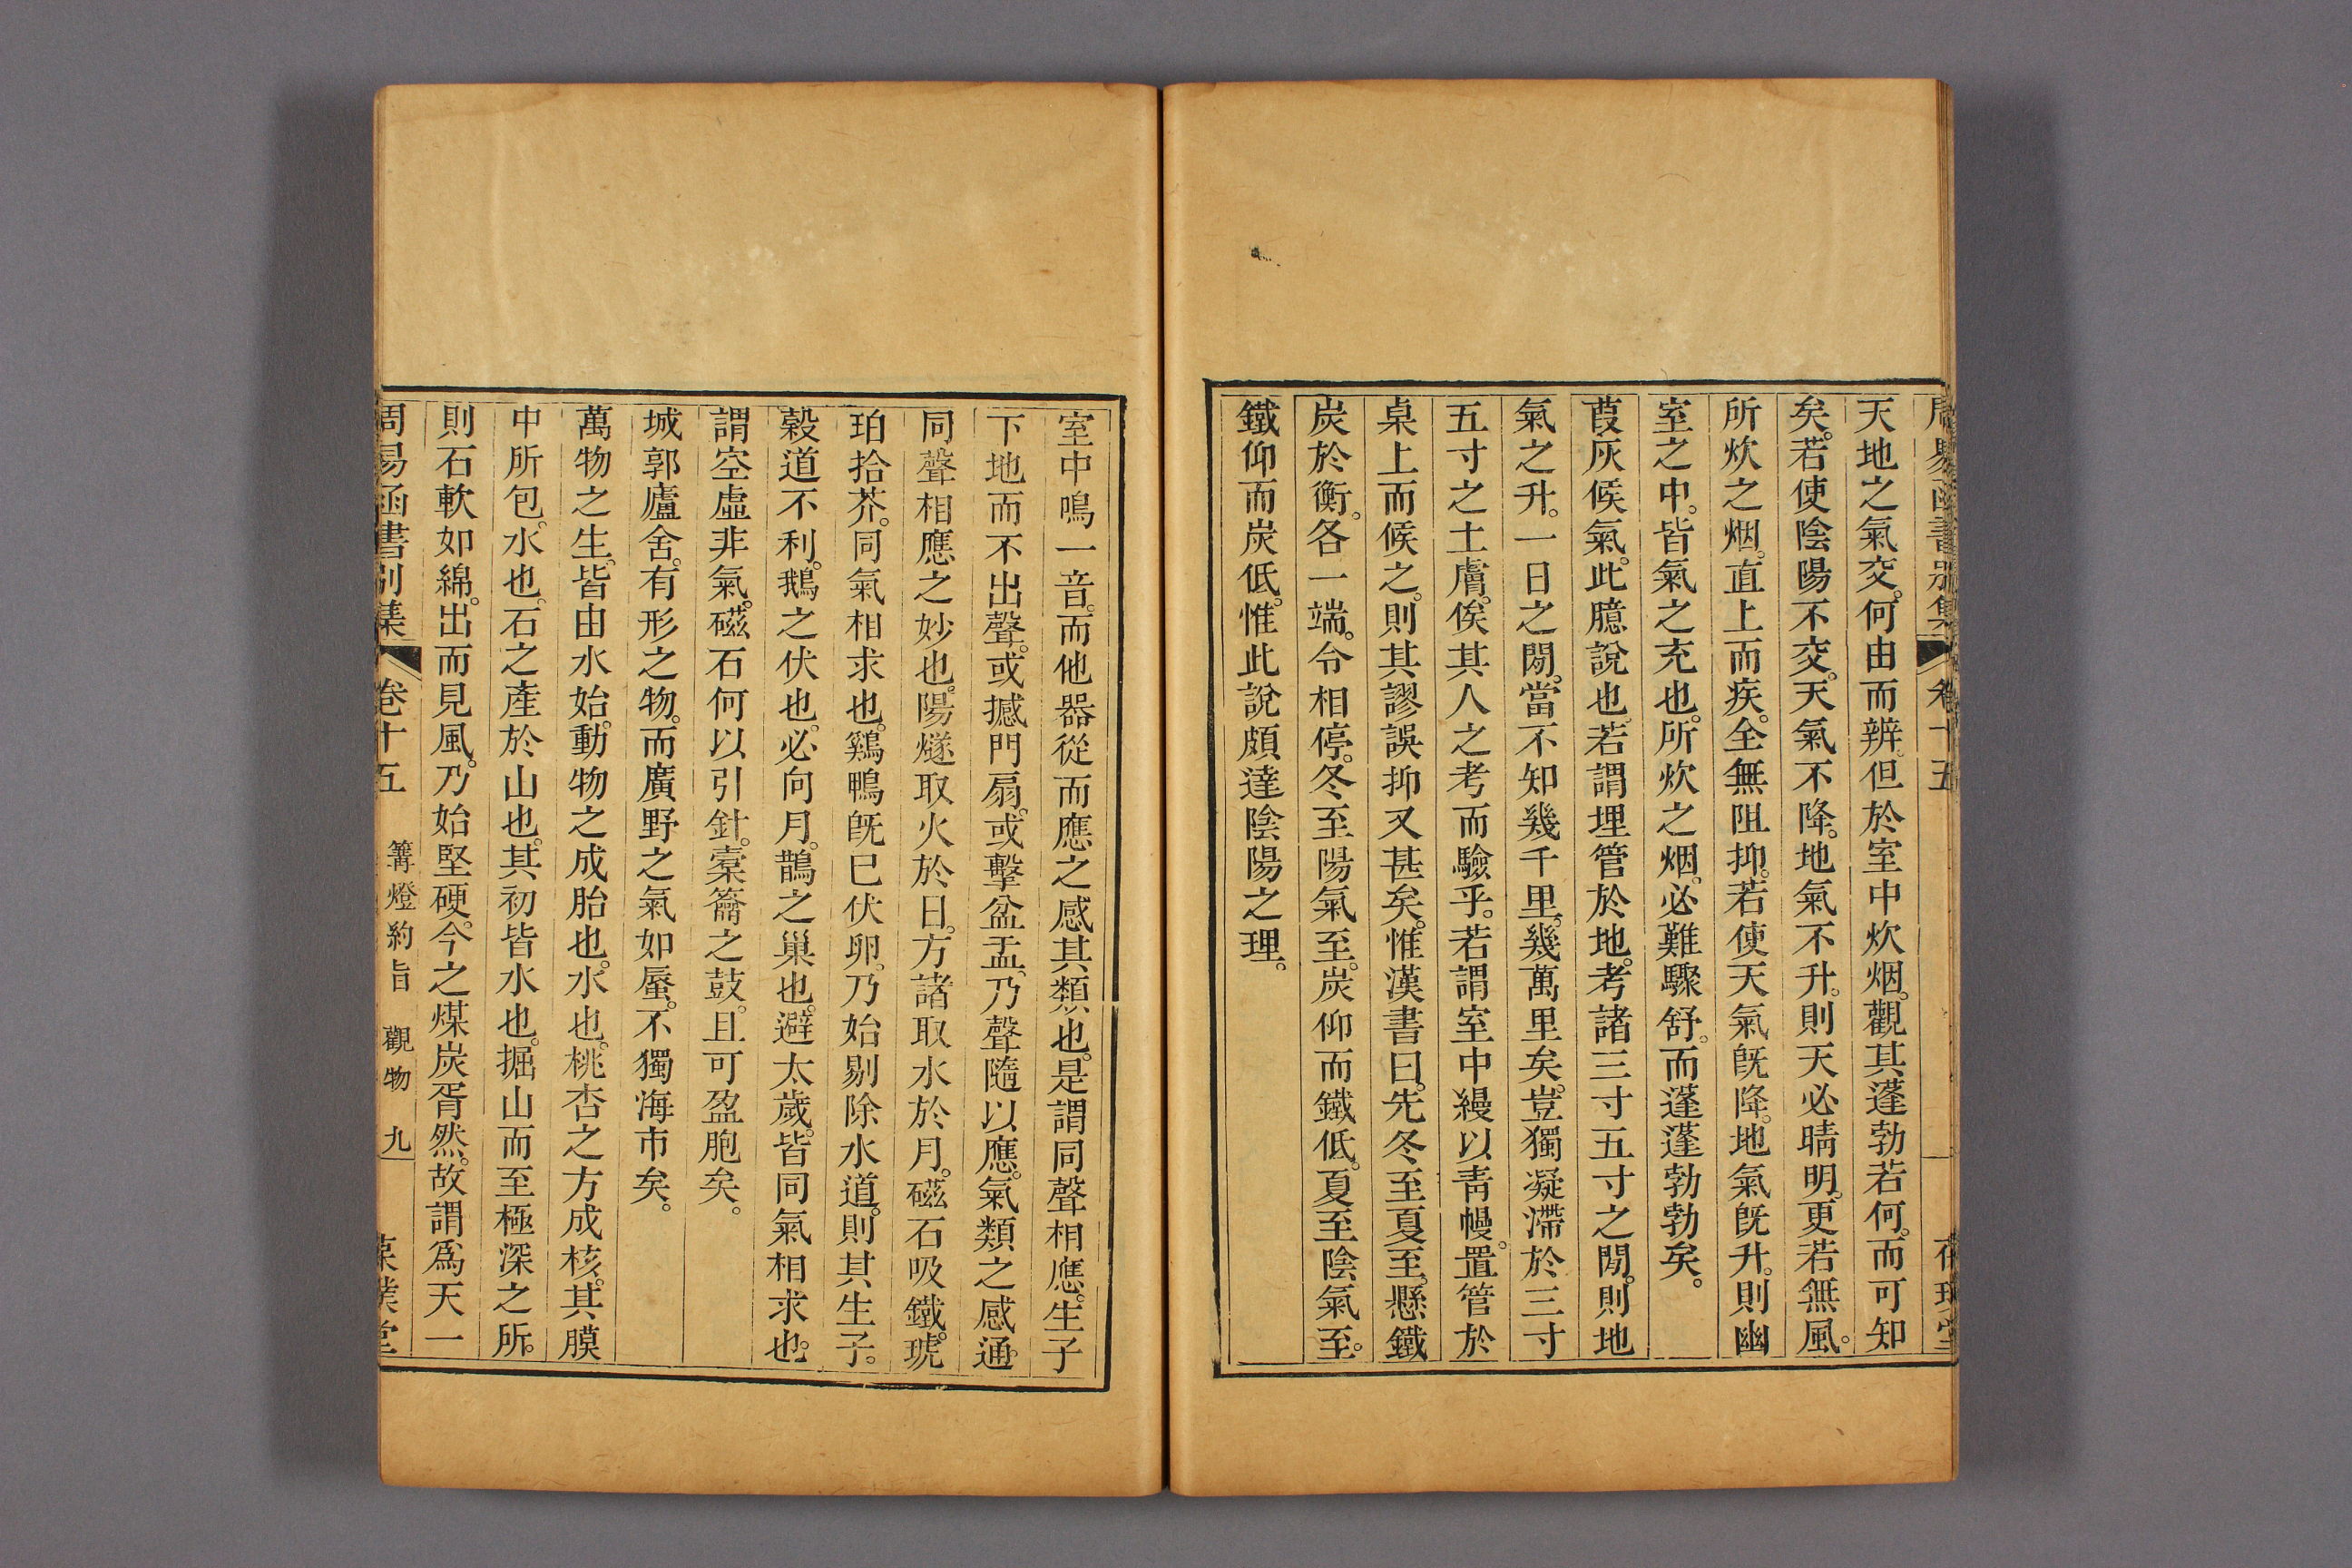 天地之氣交。何由而辨。但於室中炊烟。觀其蓬勃若何。而可知
矣。若使陰陽不交。天氣不降。地氣不升。則天必晴明。更若無風。
所炊之烟。直上而疾。全無阻抑。若使天氣旣降。地氣旣升。則幽
室之中。皆氣之充也。所炊之烟。必難驟舒。而蓬蓬勃勃矣。
葭灰候氣。此臆說也。若謂埋管於地。考諸三寸五寸之閒。則地
氣之升。一日之閒。當不知幾千里。幾萬里矣。豈獨凝滯於三寸
五寸之土膚。俟其人之考而驗乎。若謂室中縵以靑幔。置管於
桌上而候之。則其謬誤抑又甚矣。惟漢書曰。先冬至夏至。懸鐵
炭於衡。各一端。令相停。冬至陽氣至。炭仰而鐵低。夏至陰氣至。
鐵仰而炭低。惟此說頗達陰陽之理。
室中鳴一音。而他器從而應之。感其類也。是謂同聲相應。生子
下地而不出聲。或撼門扇。或擊盆盂。乃聲隨以應。氣類之感通。
同聲相應之妙也。陽燧取火於日。方諸取水於月。磁石吸鐵。琥
珀拾芥。同氣相求也。鷄鴨旣巳伏卵。乃始剔除水道。則其生子。
穀道不利。鵝之伏也。必向月。鵲之巢也。避太歲。皆同氣相求也。
謂空虛非氣。磁石何以引針。橐籥之鼓。且可盈胞矣。
城郭廬舍。有形之物。而廣野之氣如蜃。不獨海市矣。
萬物之生。皆由水始。動物之成胎也。水也。桃杏之方成核。其膜
中所包。水也。石之產於山也。其初皆水也。掘山而至極深之所。
則石軟如綿。出而見風。乃始堅硬。今之煤炭胥然。故謂爲天一
周易函書別集 卷十五 篝燈約旨 觀物 九